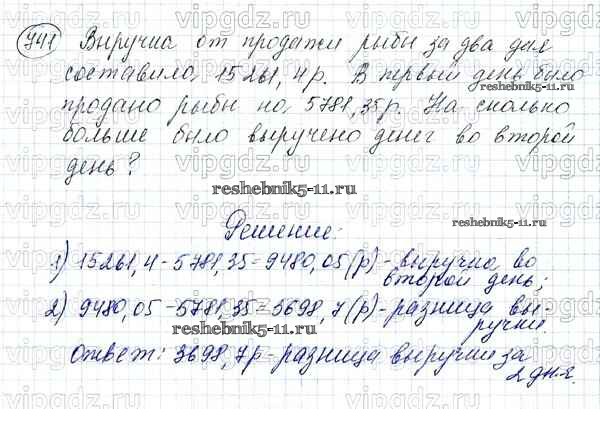 741 Выручка от продажи рыбы за два дня
составила 15261,4р. В первый день было
продано рыбы на 5781,35р. На сколько
больше было выручено денег во второй
день?
Решение:
1) 15261,4-5781,35=9480,05(р)-выручка во
второй день;
2) 9480,05-5781,35=3698,7(р)-разница вы-
ручки.
Ответ: 3698,7р-разница выручки за
2 дня.
reshebnik5-11.ru
reshebnik5-11.ru
reshebnik5-11.ru
reshebnik5-11.ru
vipgdz.ru